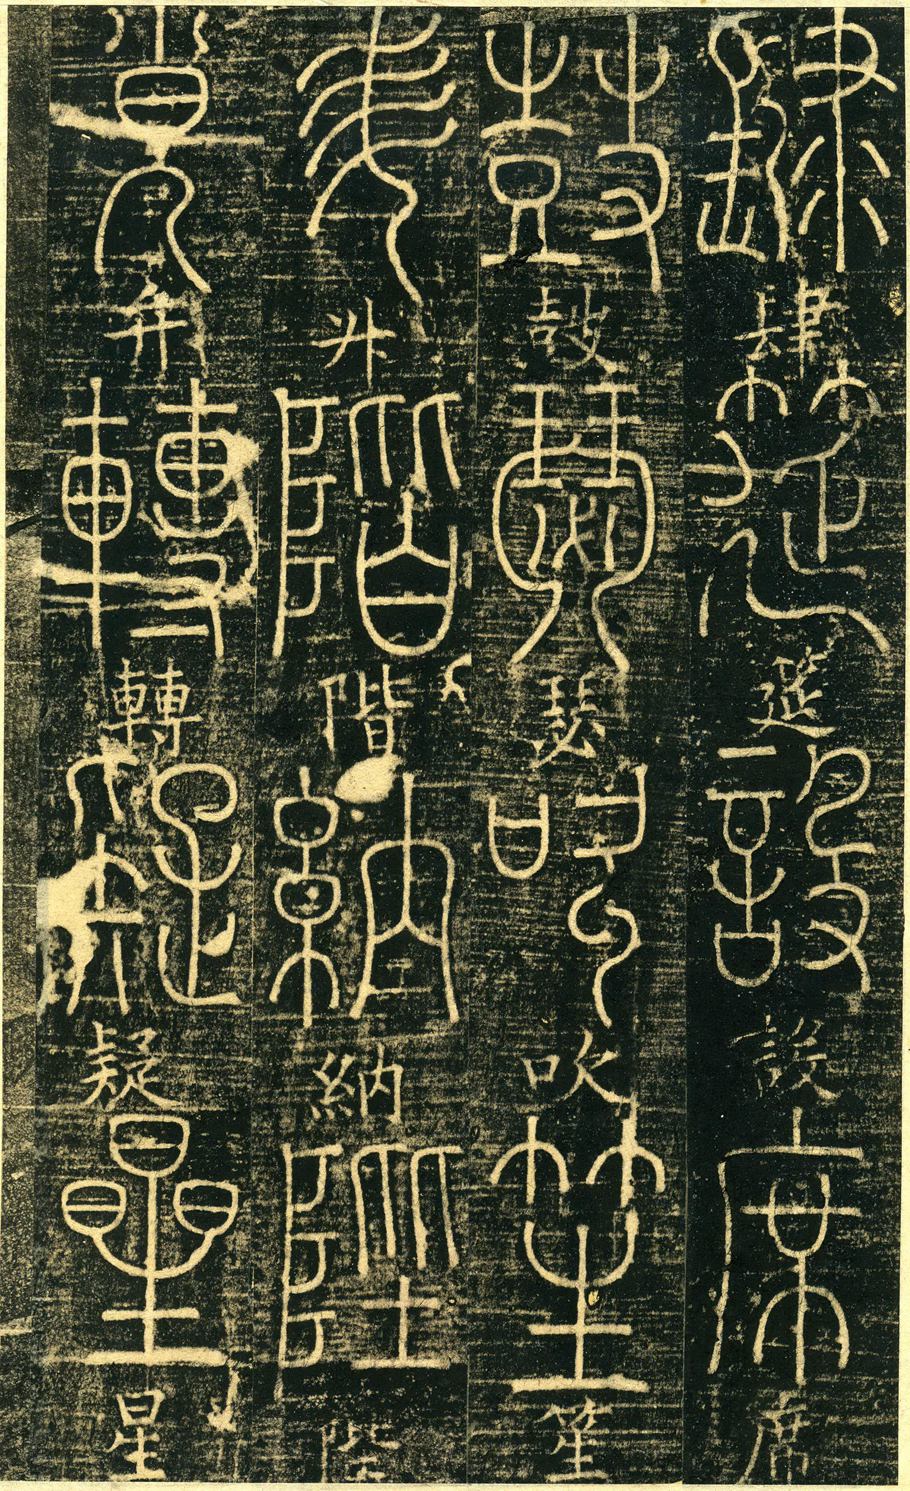 肆肆筵筵設設席席
鼓鼓瑟瑟吹吹笙笙
升升階階納納陛陛
弁弁轉轉疑疑星星